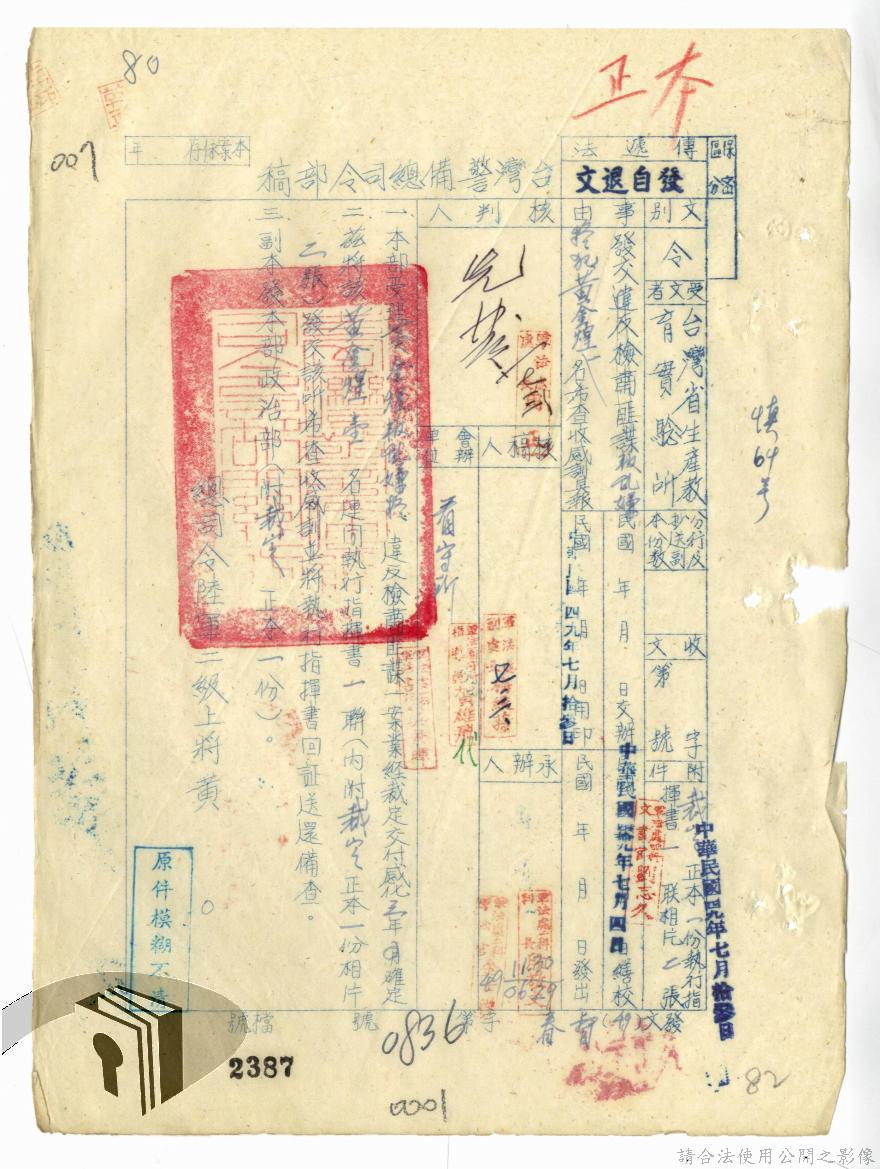 80
正本
007
保密
區分
傳遞法
發自退文
本案保存 年
台灣警備總司令部稿
文別
令
受文者
台灣省生產教育實驗所
分行及抄送副本份數
收文
字第 號
附件
裁定正本一份執行指揮書一聯相片二張
事由
發交違反檢肅匪諜
黃金煌一名希查收感訓具報
核判人
核稿人
會辦單位
看守所
承辦人
民國 年 月 日交辦
中華民國四九年七月四日繕校
民國 年 月 日用印
四九年七月拾參日
民國 年 月 日發出
中華民國四九年七月拾參日
發文
(49)
字第
0836
號
檔號
一、本部受理 違反檢肅匪諜一案業經裁定交付感化三年 月確定
二、茲將該黃金煌壹名連同執行指揮書一聯(內附裁定正本一份相片
二張)發交該所希查收感訓並將執行指揮書回証送還備查。
三、副本發本部政治部(附裁定正本一份)。
總司令陸軍二級上將黃
代
慎64号
原件模糊不清
2387
0001
82
請合法使用公開之影像